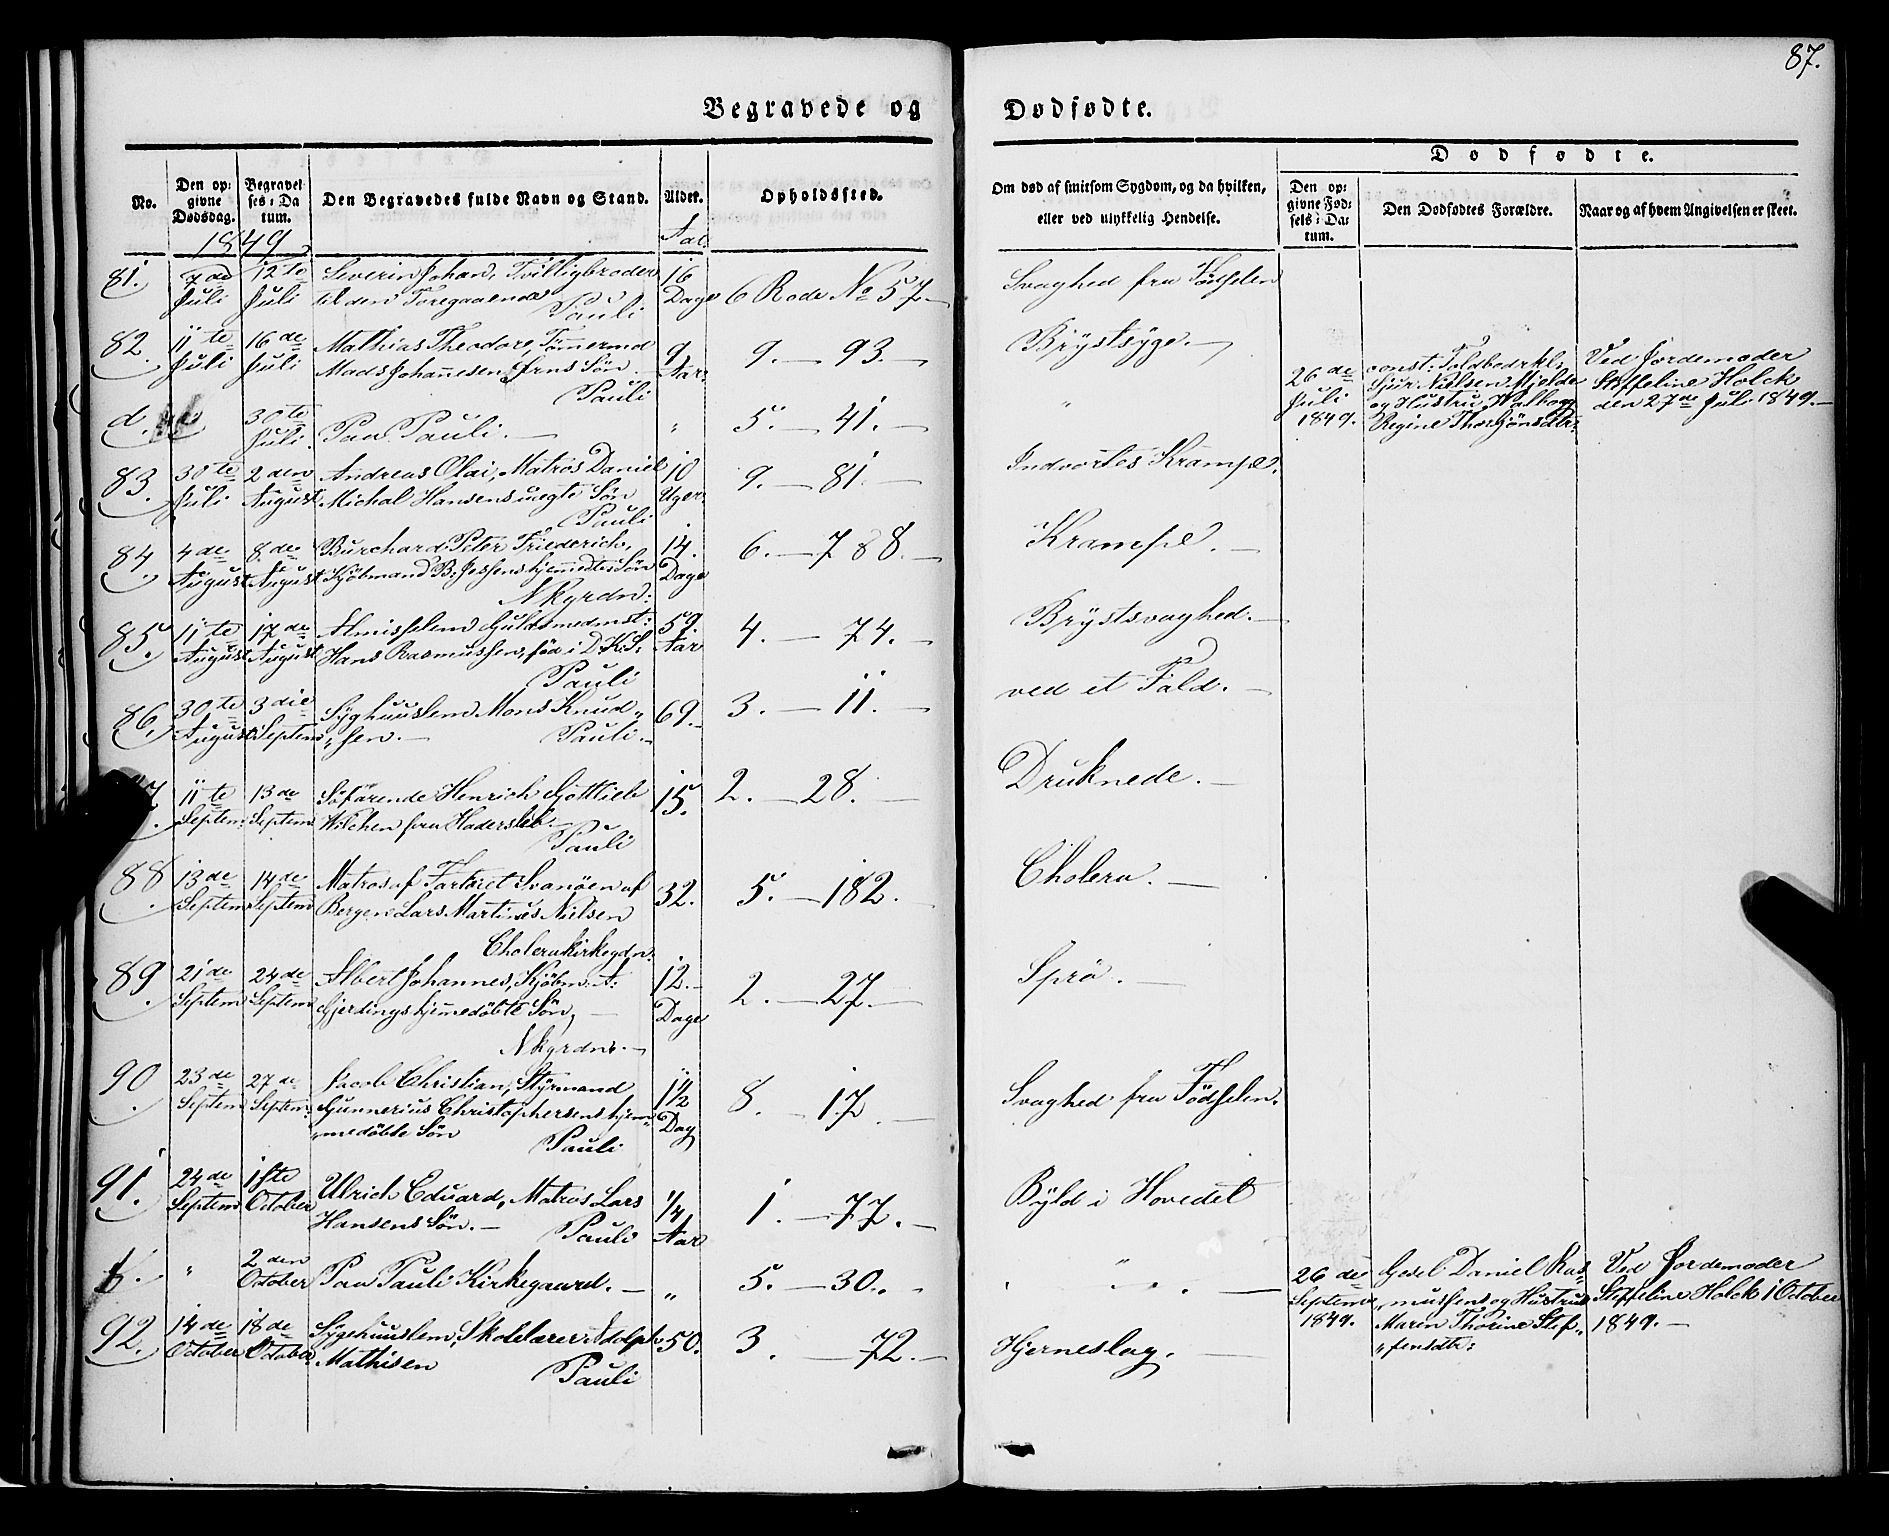 87.
Begravede og Dødfødte.
No.
Den opgivne Dødsdag.
Begravelses-Datum.
Den Begravedes fulde Navn og Stand.
Alder.
Opholdssted.
Om død af smitsom Sygdom, og da hvilken, eller ved ulykkelig Hendelse.
Dødfødte.
Den opgivne Fødsels-Datum.
Den Dødfødtes Forældre.
Naar og af hvem Angivelsen er skeet.
1849
Aar
81. 7de 12te Severin Johan, Tvilligbroder 16 Svaghed fra Födselen
Juli Juli til den Foregaaende Dage 6 Rode No 57.
Pauli
82. 11te 16de Mathias Theodore, Tömermd 9 9. — 93. — Brÿstsÿge. —
Juli Juli Mads Johannesen Søn. Aar.
Pauli
d. 30te Paa Pauli. — " 5. — 41. — "
Juli
26de Juli 1849.
const: Toldbodrkl,
Nielsen Mjelde
og Hustru
Regine
Ved Jordemoder
Steffeline Holck
den 27de Juli 1849. —
83. 30te 2den Andreas Olai, Matros Daniel 10 9. — 81. — Indvortes Krampe.
Juli August Michal Hansens uegte Søn Uger.
Pauli
84. 4de 8de Burchard Peter Friederich, 14. 6. — 788. — Krampe. —
August August Kjöbmand B. Jessens hjemmedte Søn Dage
Nkgrdn:
85. 11te 17de Almisselem Guldsmedmst: 59. 4. — 74. — Brÿstsvaghed. —
August August Hans Rasmussen, föd i D. K. S. Aar
Pauli
86. 30te 3die Sÿghuuslem Mons Knud„ 69. — 3. — 11. — ved et Fald. —
August Septem „sen. — Pauli. —
7. 11te 13de Söfarende Henrich Gottlieb 15. 2. — 28. — Druknede. —
Septem. Septem. Wilchen fra Hadersleb. —
Pauli
88. 13de 14de Matros af Fartöiet Svanöen af 32. 5. — 182. — Cholera. —
Septem Septem Bergen Lars Martinus Nielsen
Cholerakirkegdn.
89. 21de 24de Albert Johannes, Kjöbm. A. 12. — 2. — 27. — Sprö. —
Septem Septem Gjerdings hjemedöbte Søn, — Dage
Nkgrdn. —
90. 23de 27de Jacob Christian, Stÿrmand 1½ 8. — 17. — Svaghed fra Födselen.
Septem Septem. Gunnerius Christophersens hjem„ Dag
„medöbte Søn Pauli
91. 24de 1ste Ulrich Eduard, Matros Lars ¼ 1. — 77. — Bÿld i Hovedet
Septem October Hansens Søn. — Pauli Aar
" 2den Paa Pauli Kirkegaard. — " 5. — 30.
October
26de Septem 1849.
Gesel Daniel Ras„
„mussens og Hustrue
Maren Thorine Stef„
„fensdtr:
Ved Jordemoder
Steffeline Holck i October
1849. —
92. 14de 18de Sÿgehuuslem, Skolelærer Adolph 50. 3. — 72. — Hjerneslag. —
October October Mathisen
Pauli